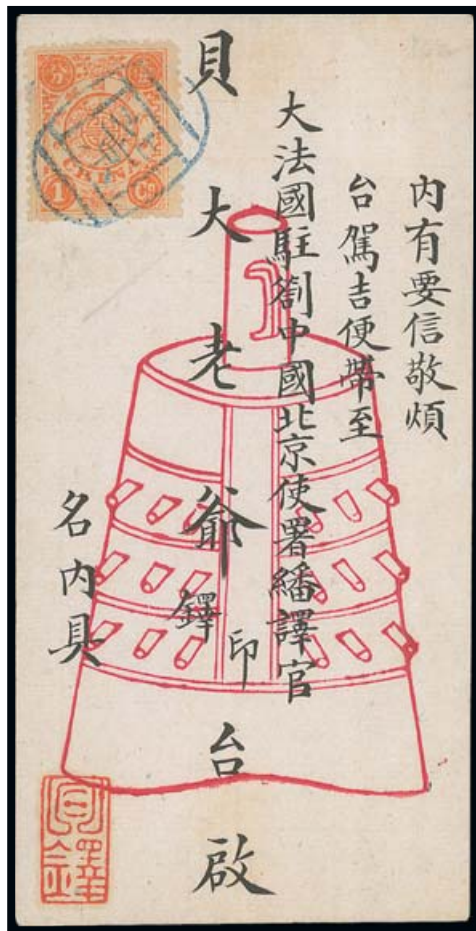 內有要信敬煩
台駕吉便帶至
大法國駐劄中國北京使署繙譯官
貝大老爺鐸印台啟
名內具
貝鐸
CHINA
1